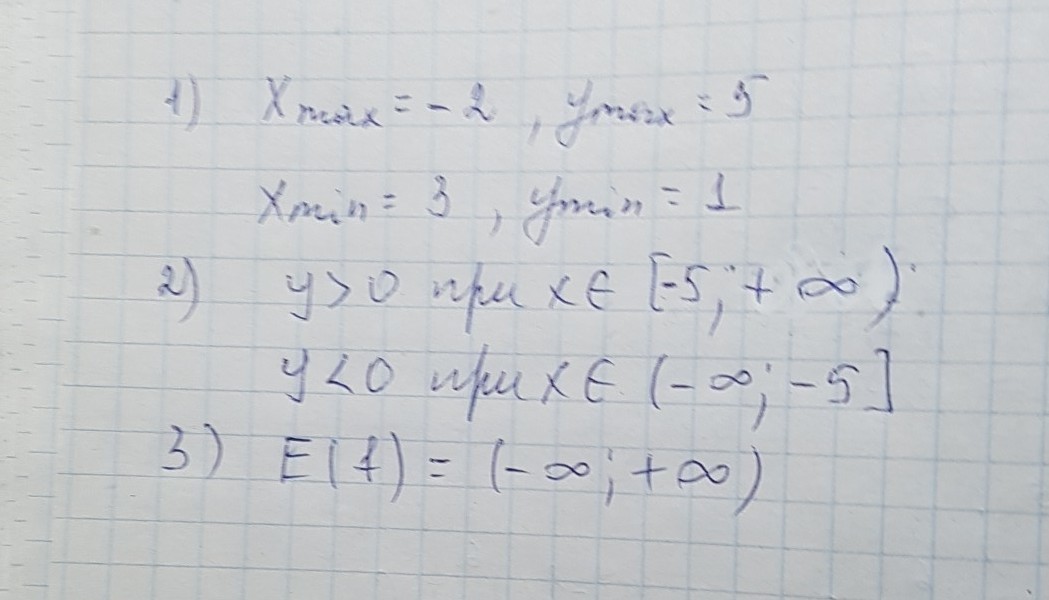 1) Xmax = -2, ymax = 5
Xmin = 3, ymin = 1
2) y > 0 при x ∈ [-5; +∞)
y < 0 при x ∈ (-∞; -5]
3) E(f) = (-∞; +∞)